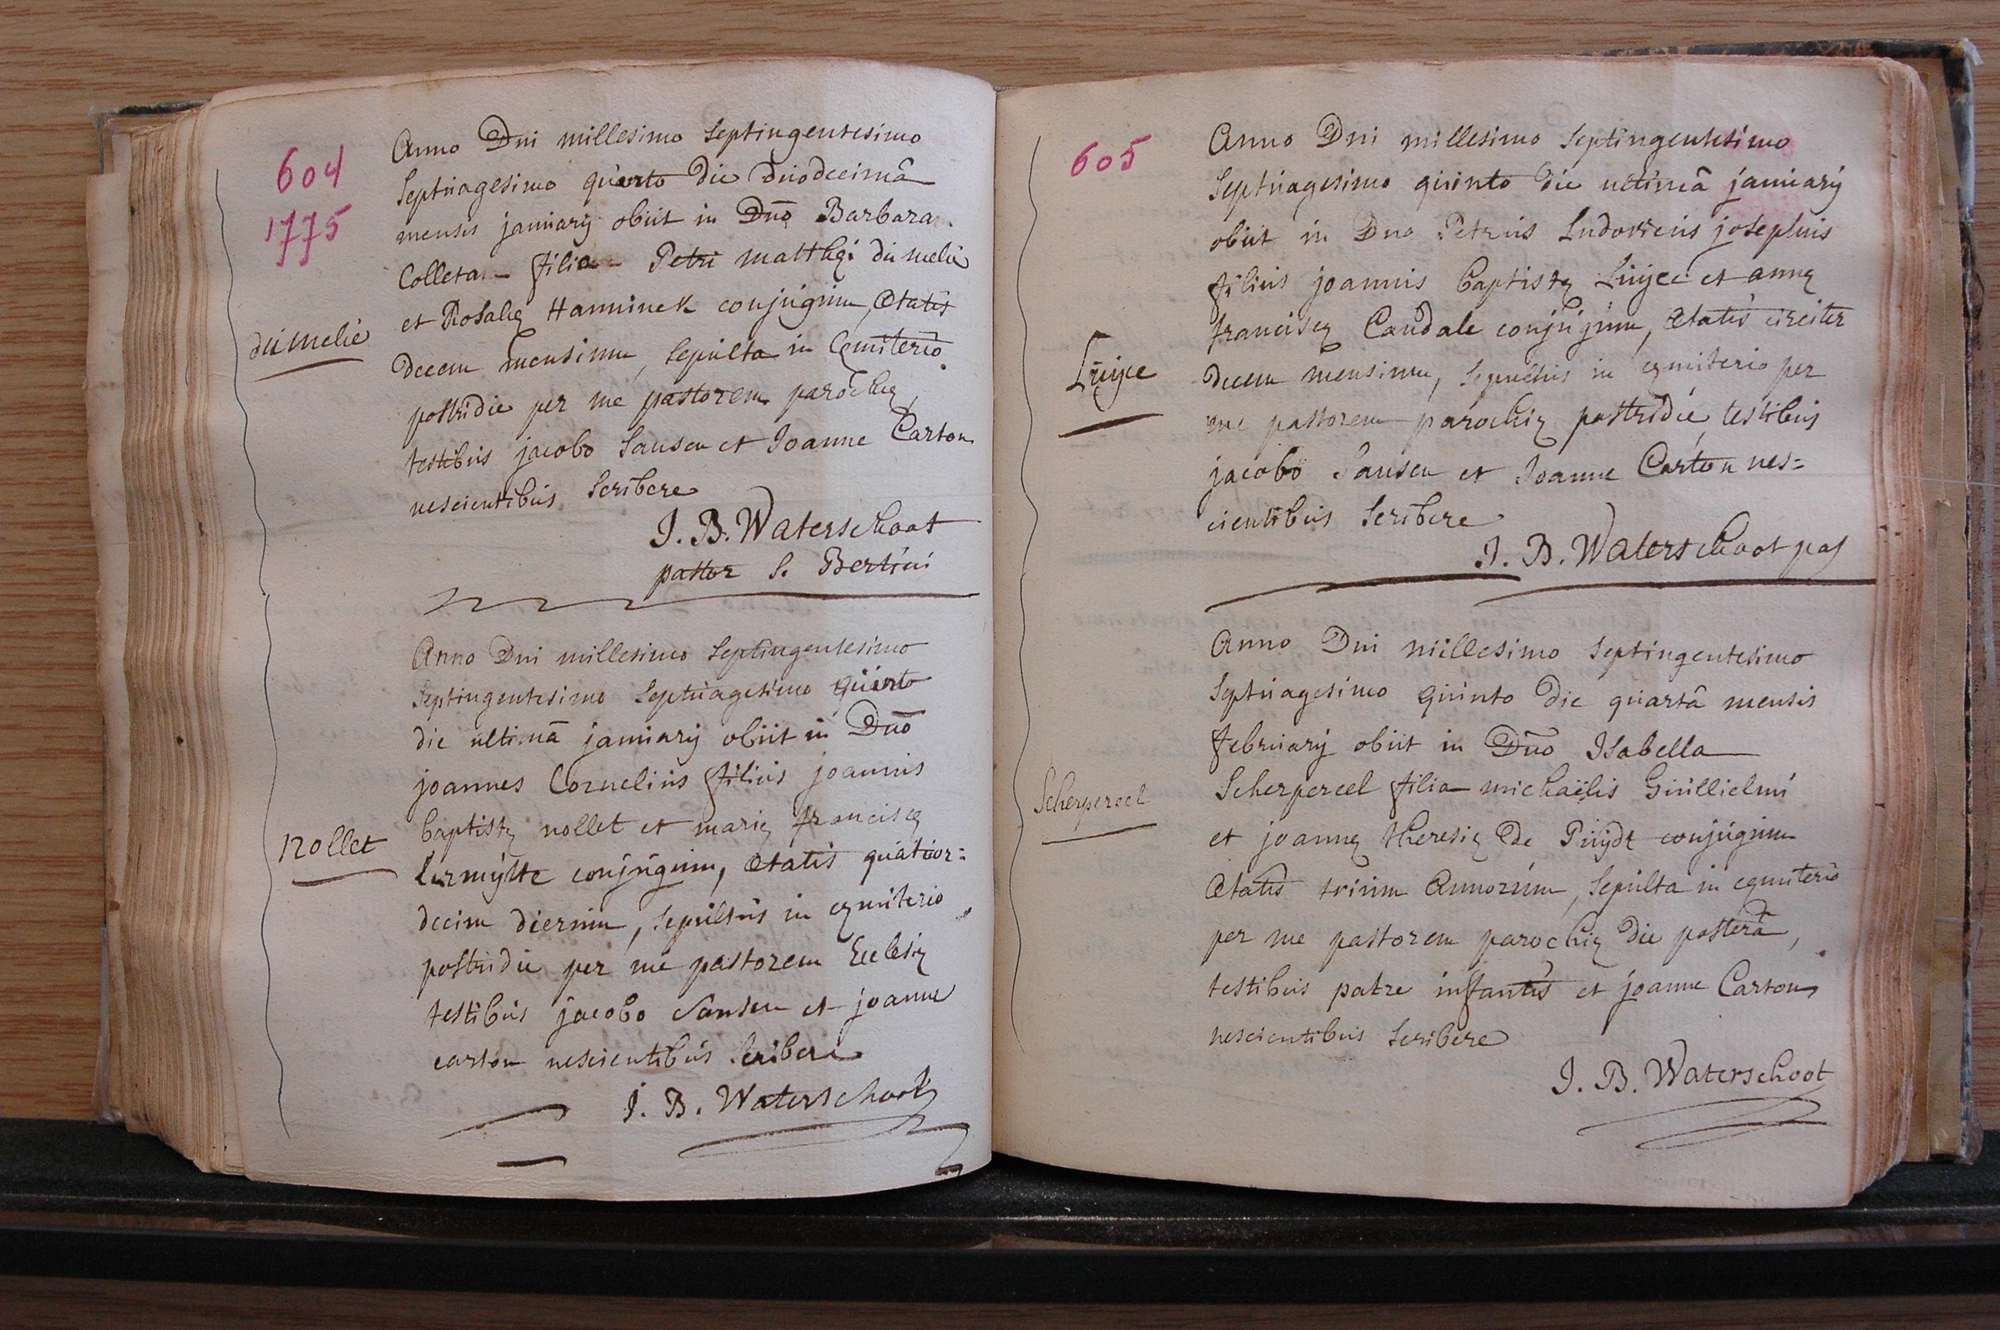 604
1775
Anno Dni millesimo Septingentesimo
Septuagesimo quarto die duodecimâ
mensis januarij obiit in Dno Barbara
Colleta filia Petri matthęi du melié
et Rosalię Hanninck conjugum, Ætatis
du melié
decem mensium, sepulta in Cęmiterio
postridie per me pastorem parochię,
testibus jacobo Sansen et Joanne Carton
nescientibus Scribere
J. B. Waterschoot
pastor S. Bertini
Anno Dni millesimo Septingentesimo
Septingentesimo Septuagesimo quarto
die ultimâ januarij obiit in Dno
joannes Cornelius filius joannis
baptistę nollet et marię franciscę
Nollet
conjugum, Ætatis quatuor=
decim dierum, sepultus in cęmiterio
postridie per me pastorem Ecclesię
testibus jacobo Sansen et joanne
carton nescientibus Scribere
J. B. Waterschoot
605
Anno Dni millesimo Septingentesimo
Septuagesimo quinto die ultimâ januarij
obiit in Dno Petrus Ludovicus josephus
filius joannis baptistę et annę
franciscę Caudale conjugum, Ætatis circiter
decem mensium, sepultus in cęmiterio per
me pastorem parochię postridie, testibus
jacobo Sansen et Joanne Carton nes=
cientibus Scribere
J. B. Waterschoot pas
Anno Dni millesimo Septingentesimo
Septuagesimo quinto die quartâ mensis
februarij obiit in Dno Isabella
Scherpereel
Scherpereel filia michaëlis Guillielmi
et joannę theresię de Puydt conjugum
Ætatis trium Annorum, sepulta in cęmiterio
per me pastorem parochię die posterâ,
testibus patre infantis et joanne Carton
nescientibus Scribere
J. B. Waterschoot